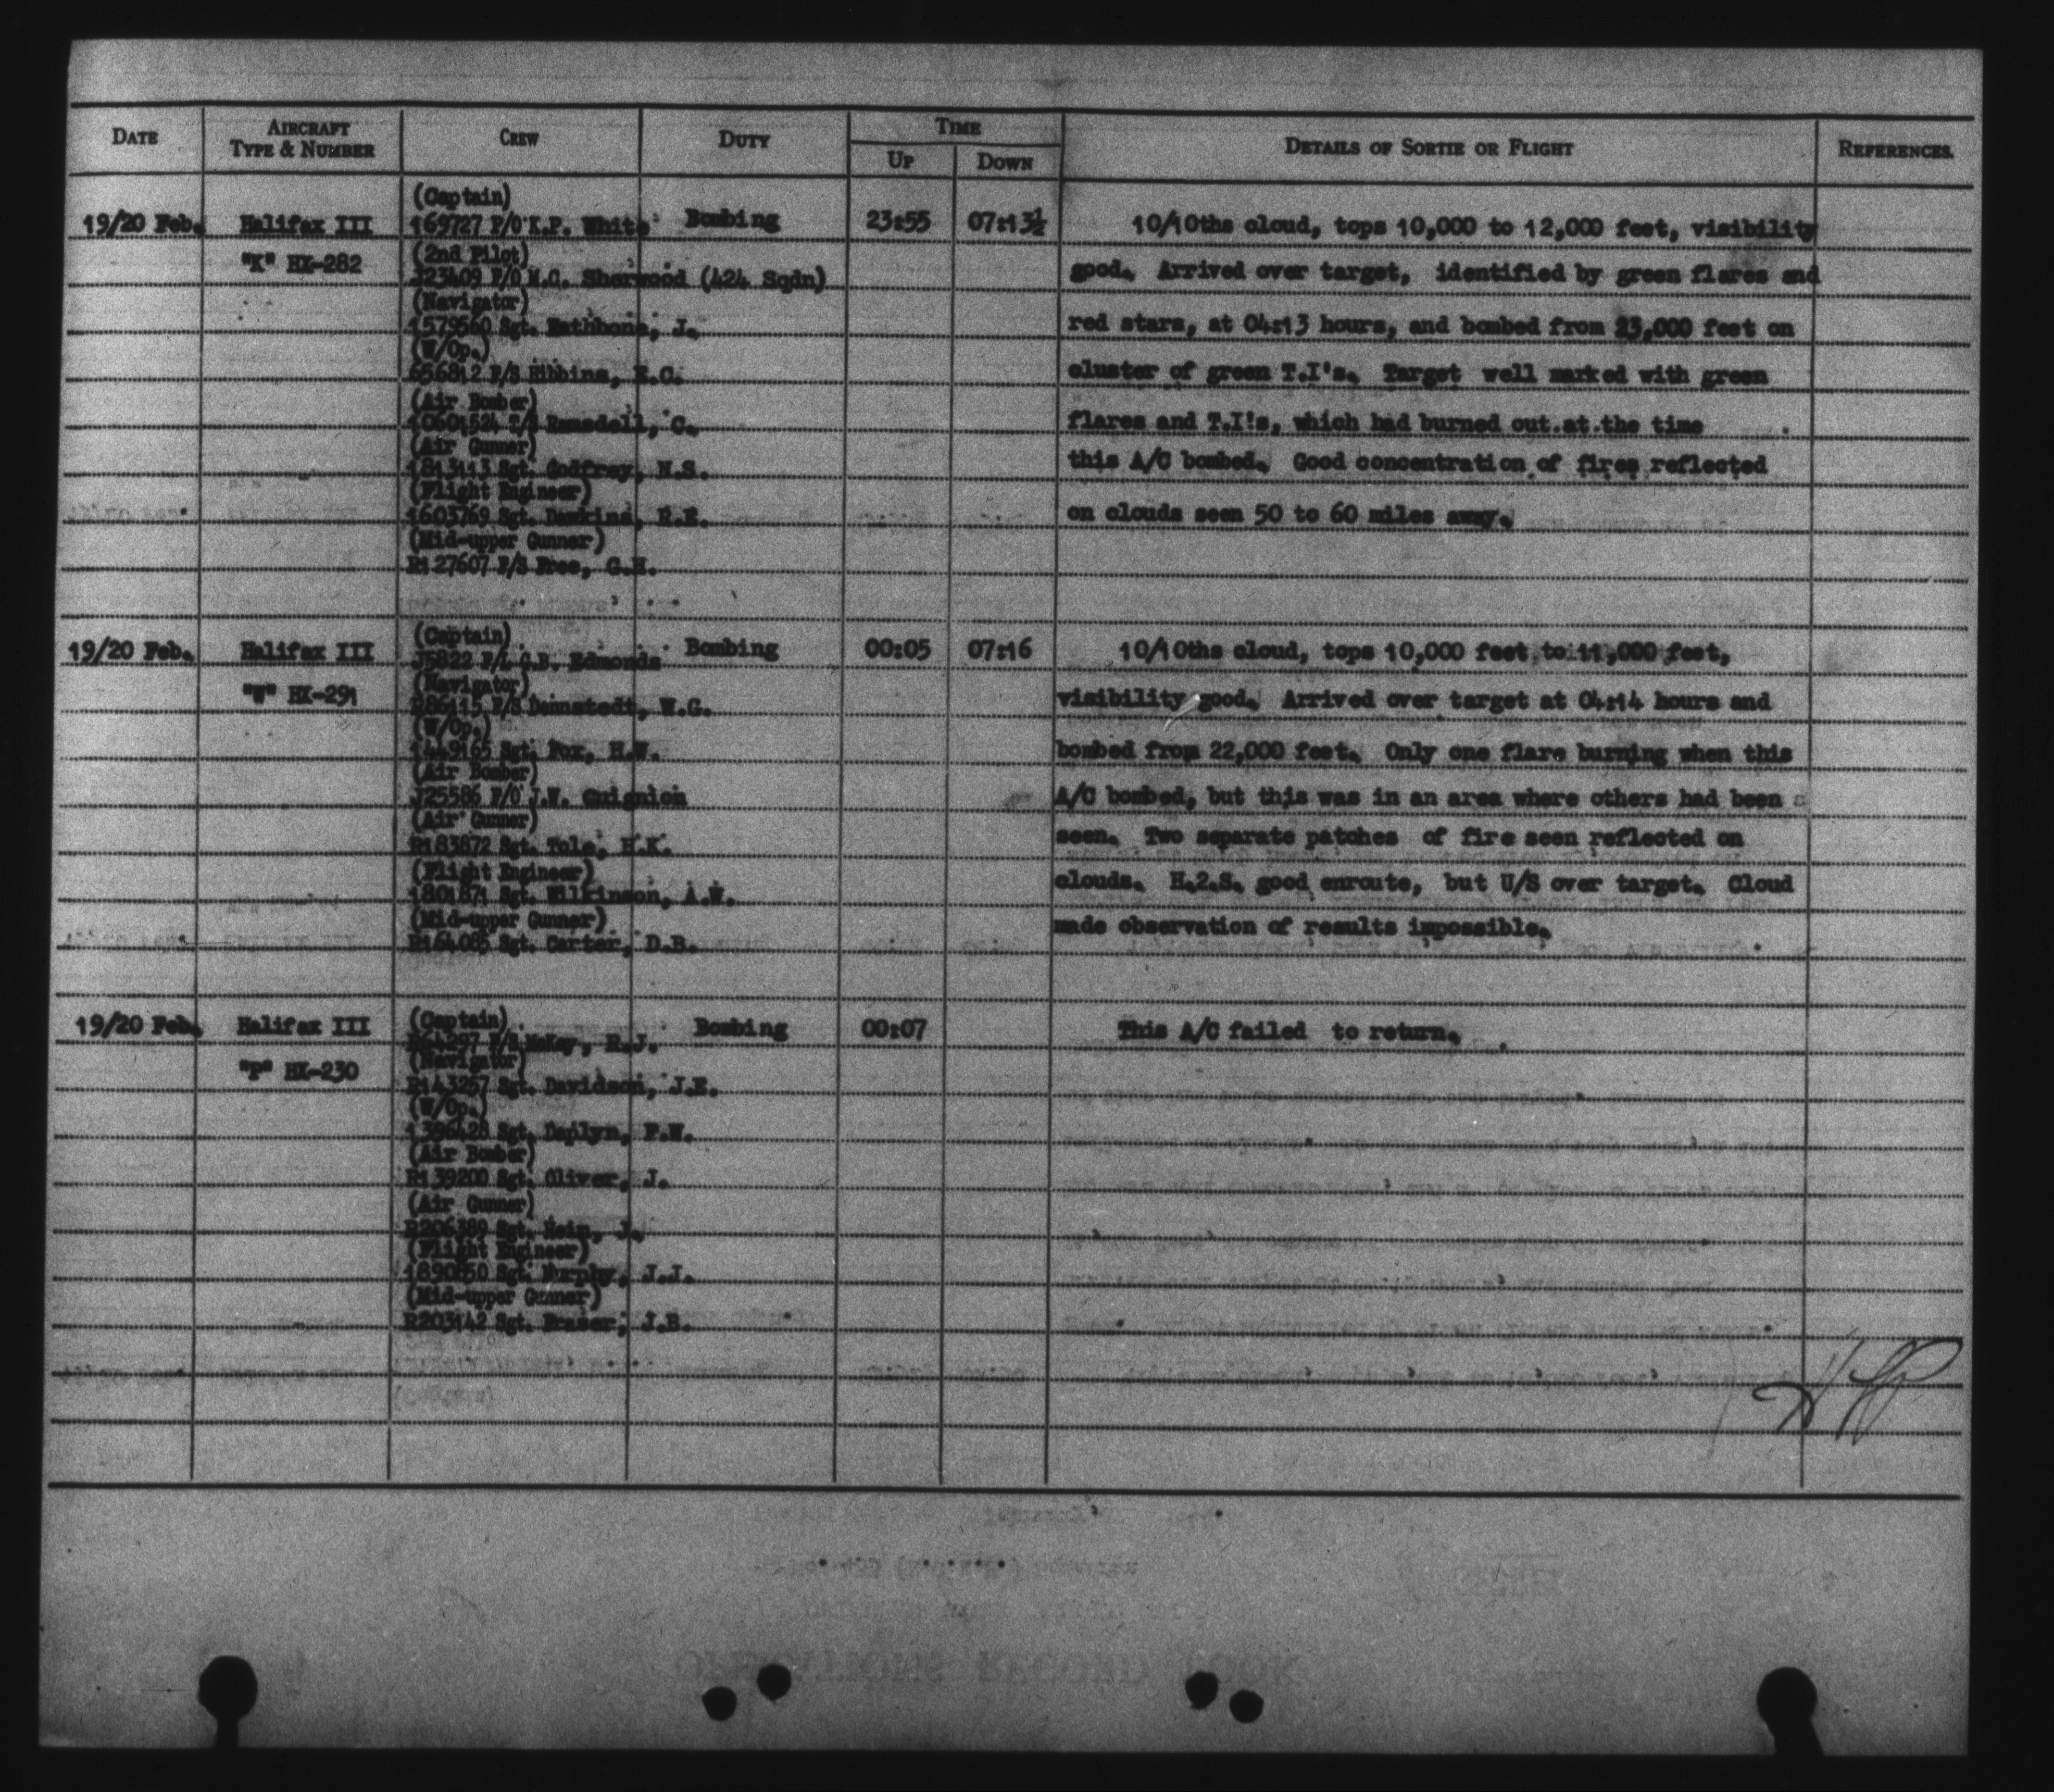 DATE
AIRCRAFT TYPE & NUMBER
CREW
DUTY
TIME
UP
DOWN
DETAILS OF SORTIE OR FLIGHT
REFERENCES.
(Captain)
19/20 Feb. Halifax III 169727 P/O K.P. White Bombing 23:55 07:13½ 10/10ths cloud, tops 10,000 to 12,000 feet, visibility
"K" HX-282 (2nd Pilot)
J23409 F/O M.C. Sherwood (424 Sqdn) good. Arrived over target, identified by green flares and
(Navigator)
1579560 Sgt. Rathbone, J. red stars, at 04:13 hours, and bombed from 23,000 feet on
(W/Op.)
656812 F/S Hibbins, E.C. cluster of green T.I's. Target well marked with green
(Air Bomber)
10601524 T/S Ramsdell, C. flares and T.I's, which had burned out at the time
(Air Gunner)
1813113 Sgt. Godfrey, N.S. this A/C bombed. Good concentration of fires reflected
(Flight Engineer)
1603769 Sgt. Dawkins, R.E. on clouds seen 50 to 60 miles away.
(Mid-upper Gunner)
R127607 F/S Free, G.H.
(Captain)
19/20 Feb. Halifax III J5822 F/L G.B. Edmonds Bombing 00:05 07:16 10/10ths cloud, tops 10,000 feet to 11,000 feet,
(Navigator)
"W" HX-291 R86115 F/S Dennstedt, W.G. visibility good. Arrived over target at 04:14 hours and
(W/Op.)
1449165 Sgt. Fox, H.W. bombed from 22,000 feet. Only one flare burning when this
(Air Bomber)
J25586 F/O J.W. Quignion A/C bombed, but this was in an area where others had been
(Air Gunner)
R183872 Sgt. Tole, H.K. seen. Two separate patches of fire seen reflected on
(Flight Engineer)
1801871 Sgt. Wilkinson, A.W. clouds. H.2.S. good enroute, but U/S over target. Cloud
(Mid-upper Gunner)
R164085 Sgt. Carter, D.B. made observation of results impossible.
(Captain)
19/20 Feb. Halifax III R64297 F/S McKay, R.J. Bombing 00:07 This A/C failed to return.
(Navigator)
"P" HX-230 R143257 Sgt. Davidson, J.E.
(W/Op.)
1396428 Sgt. Deplyn, F.W.
(Air Bomber)
R139200 Sgt. Oliver, J.
(Air Gunner)
R206389 Sgt. J.
(Flight Engineer)
1890850 Sgt. Murphy, J.J.
(Mid-upper Gunner)
R203142 Sgt. Fraser, J.B.